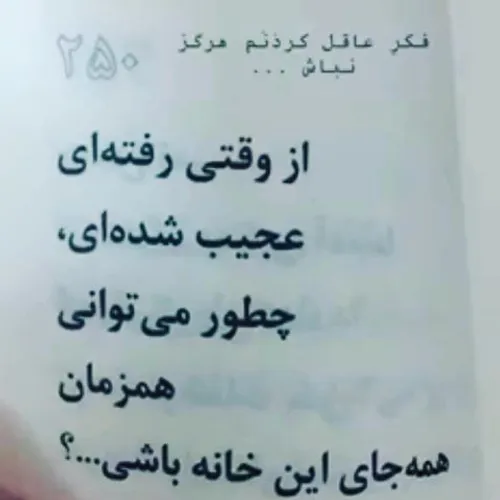 فکرِ عاقل کردنَم هرگز
نباش ...
۲۵۰
از وقتی رفته‌ای
عجیب شده‌ای،
چطور می‌توانی
همزمان
همه‌جای این خانه باشی...؟